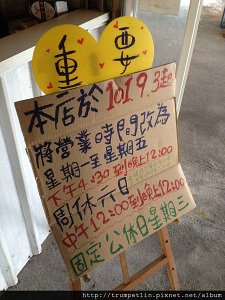 重要
本店於101.9.3起
將營業時間改為
星期一至星期五
下午4:30到晚上12:00
周休六日
中午12:00到晚上12:00
固定公休日星期三
http://trumpetlin.pixnet.net/album